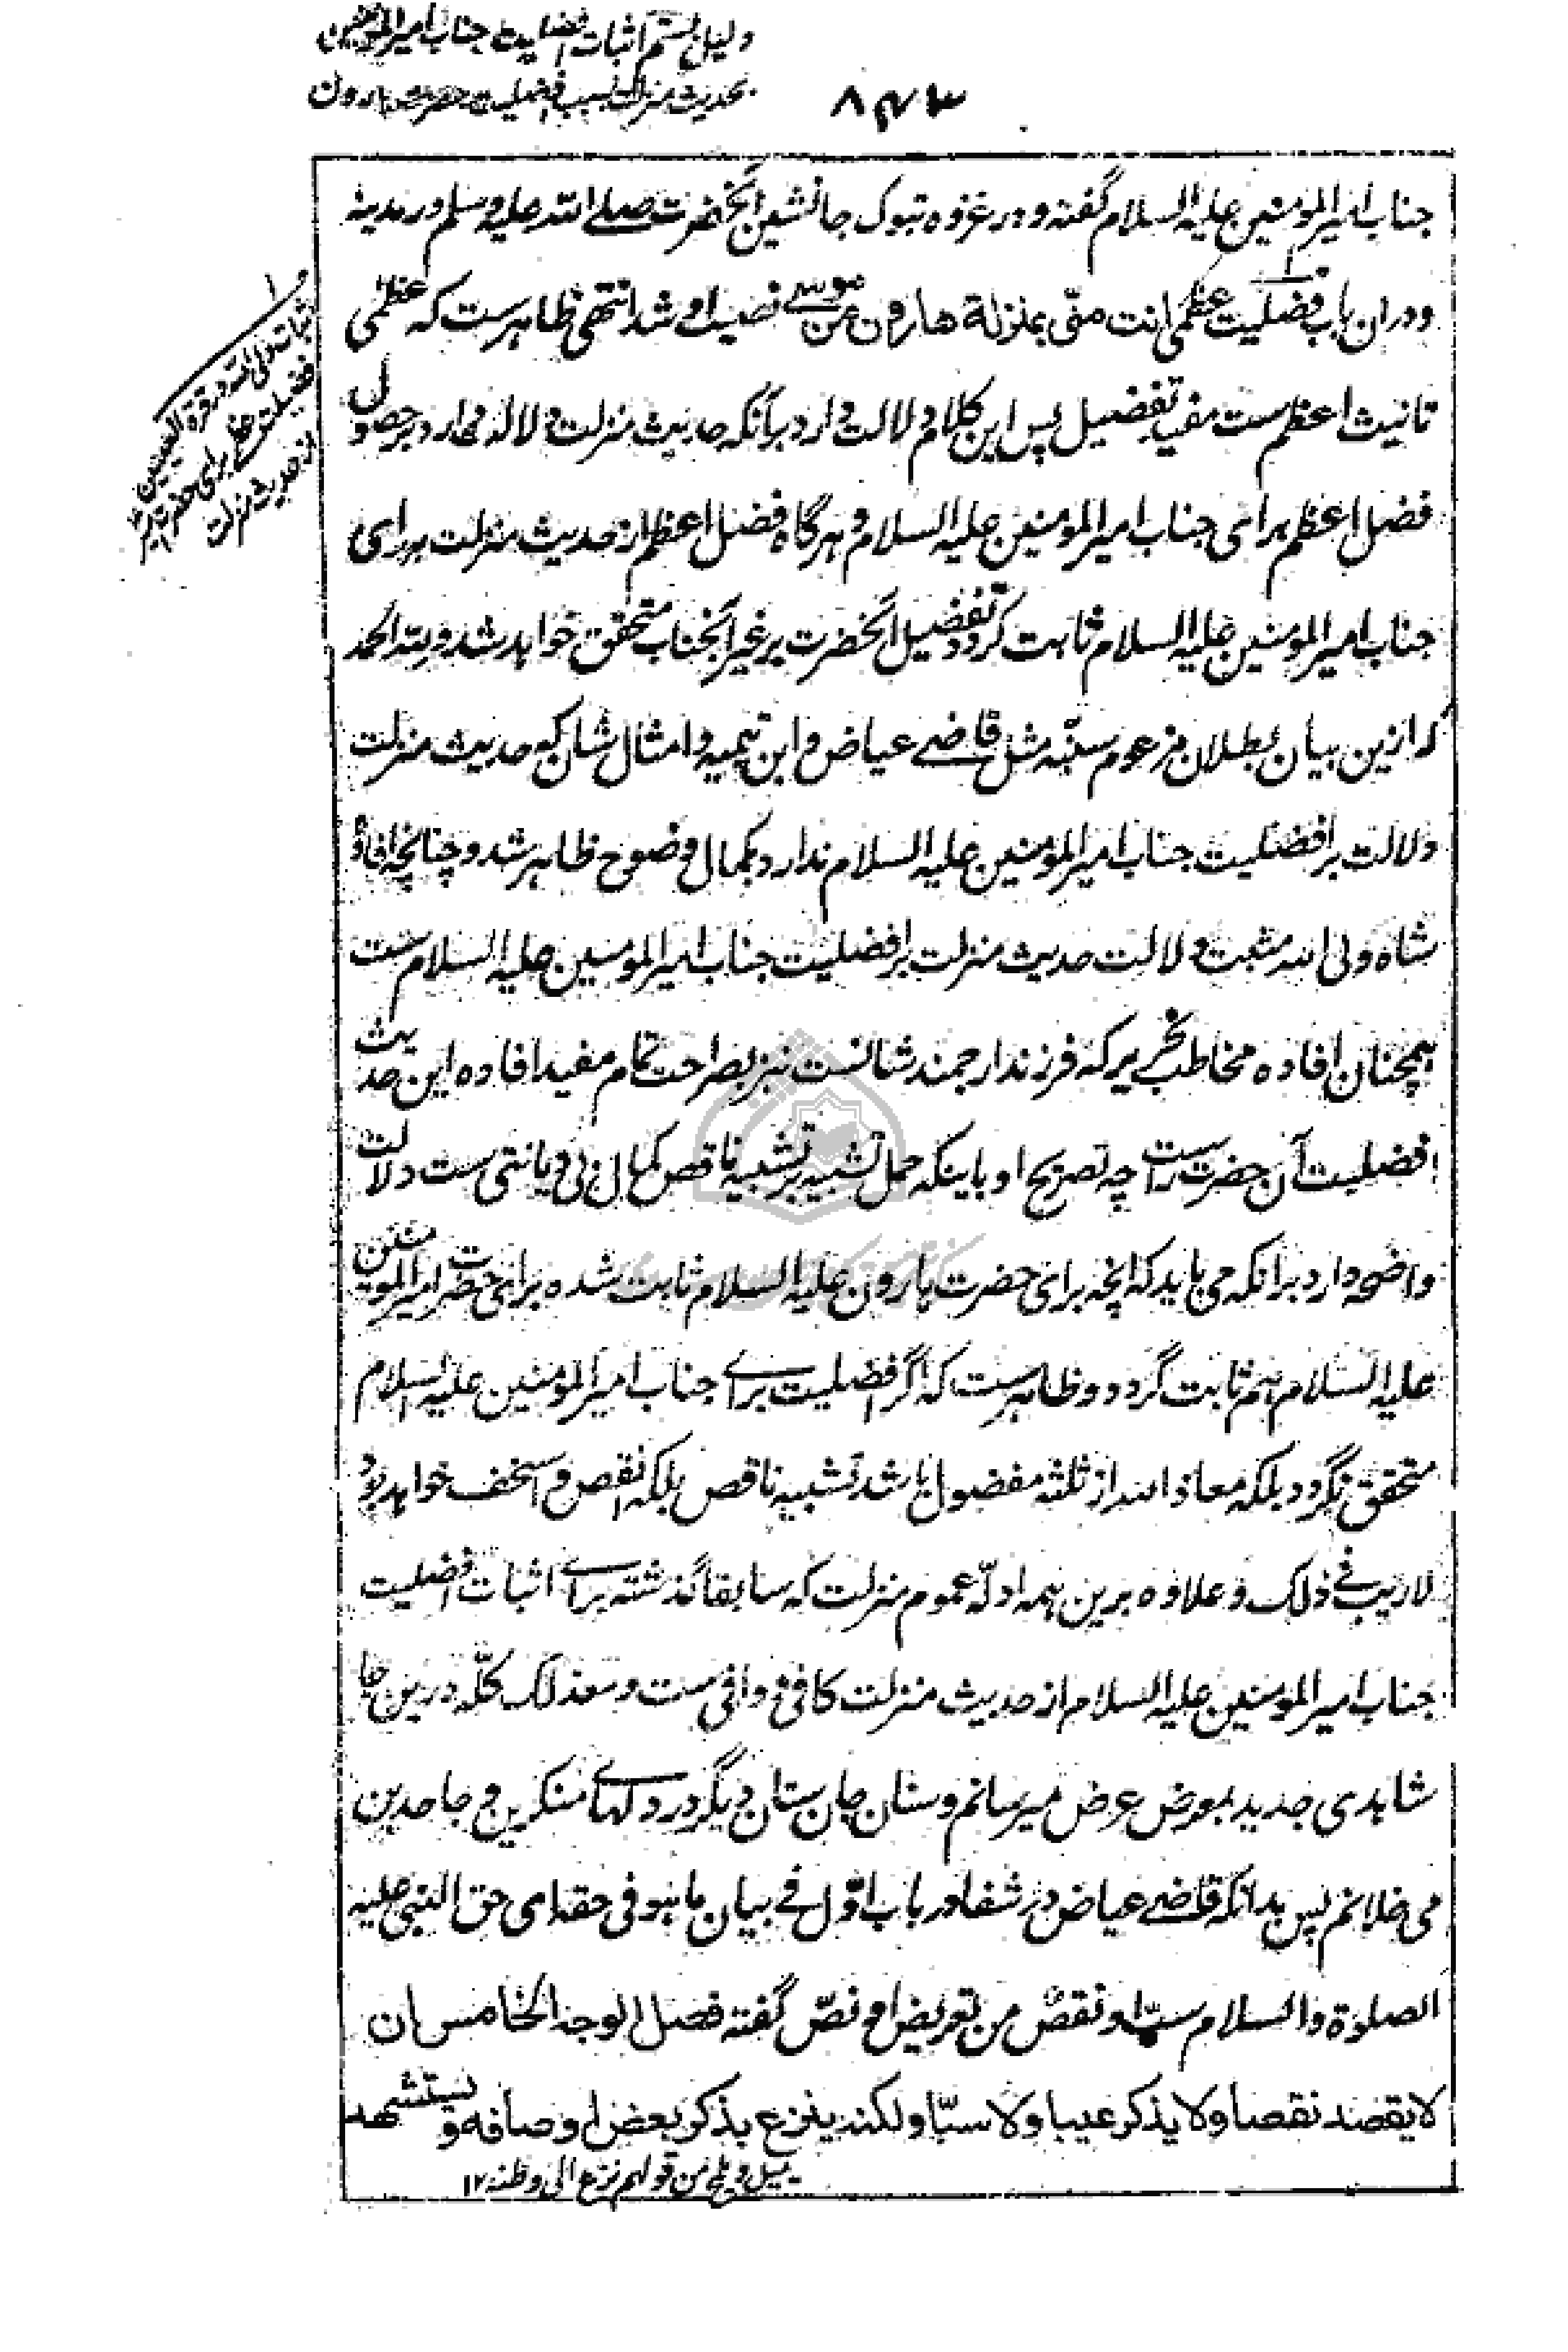 دلیل بستم اثبات افضلیت جناب امیرالمؤمنین
بحدیث منزلت بسبب افضلیت حضرت هارون
۸۴۳
جناب امیرالمومنین علیه السلام گفته و در غزوه تبوک جانشین آنحضرت صلے الله علیه وسلم در مدینه
ودران باب فضلیت عظمی انت منّی بمنزلة هارون من موسے نصیب او شد انتهی ظاهرست که عظمی
تانیث اعظم ست مفید تفضیل پس این کلام دلالت دارد برآنکه حدیث منزلت دلالة دارد بر حصول
فضل اعظم برای جناب امیرالمومنین علیه السلام و هرگاه فضل اعظم از حدیث منزلت برای
جناب امیرالمومنین علیه السلام ثابت گردد تفضیل آنحضرت بر غیر آنجناب متحقق خواهد شد و لله الحمد
که ازین بیان بطلان مزعوم سنّیه مثل قاضے عیاض و ابن تیمیه و امثال شان که حدیث منزلت
دلالت بر افضلیت جناب امیرالمومنین علیه السلام ندارد بکمال وضوح ظاهر شد و چنانچه افادهٔ
شاه ولی الله مثبت دلالت حدیث منزلت بر افضلیت جناب امیرالمومنین علیه السلام ست
همچنان افاده مخاطب نحریر که فرزند ارجمند شانست نیز بصراحت تمام مفید افاده این حدیث
افضلیت آن حضرت راست چه تصریح او باینکه حمل تشبیه بر تشبیه ناقص کمال بی دیانتی ست دلالت
واضحه دارد برانکه می باید که انچه برای حضرت هارون علیه السلام ثابت شده برای حضرت امیرالمومنین
علیه السلام هم ثابت گردد و ظاهرست که اگر افضلیت برائے جناب امیرالمومنین علیه السلام
متحقق نگردد بلکه معاذ الله از ثلثه مفضول باشد تشبیه ناقص بلکه انقص و اسخف خواهد بود
لاریب فے ذلک و علاوه برین همه ادلّه عموم منزلت که سابقا گذشته برائے اثبات افضلیت
جناب امیرالمومنین علیه السلام از حدیث منزلت کافی و وافی ست و معذلک کلّه درین جا
شاهدی جدید بمعرض عرض میرسانم و سنان جان ستان دیگر در دلهائے منکرین و جاحدین
می خلانم پس بدانکه قاضے عیاض در شفا در باب اوّل فے بیان ما هو فی حقه ای حق النبی علیه
الصلوة والسلام سبّ او نقص من تعریض او نصّ گفته فصل الوجه الخامس ان
لا یقصد نقصا ولا یذکر عیبا ولا سبّا ولکنه ینزع بذکر بعض اوصافه و یستشهد
یمیل و یلج من قولهم نزع الی وطنه ۱۲
اثبات ولی الله در قرة العینین
فضیلت عظمی برای حضرت امیر
از حدیث منزلت